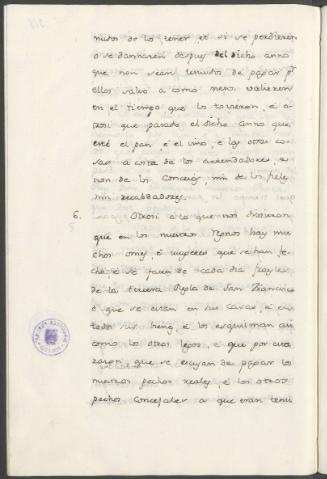 nudos de lo tener et si se perdieren
o se dannaren despues del dicho anno
que non sean tenudos de pagar por
ellos salvo a como menos valieren
en el tiempo que lo tovieron, é o
trosi que pasado el dicho anno que
esté el pan é el vino, e las otras co
sas a costa de los arrendadores, e
non de los Concejos, nin de los fieles,
nin recabdadores.
6. Otrosi a lo que nos disieron
que en los nuestros Regnos hay mu
chos omes, é mujeres que se han fe
cho, é se facen de cada dia frayles
de la tercera Regla de San Francisco
é que se estan en sus casas, é en
todos sus bienes, é los esquilman asi
como los otros legos, é que por esta
razon, que se escusan de pagar los
nuestros pechos reales, é los otros
pechos concejales a que eran tenu